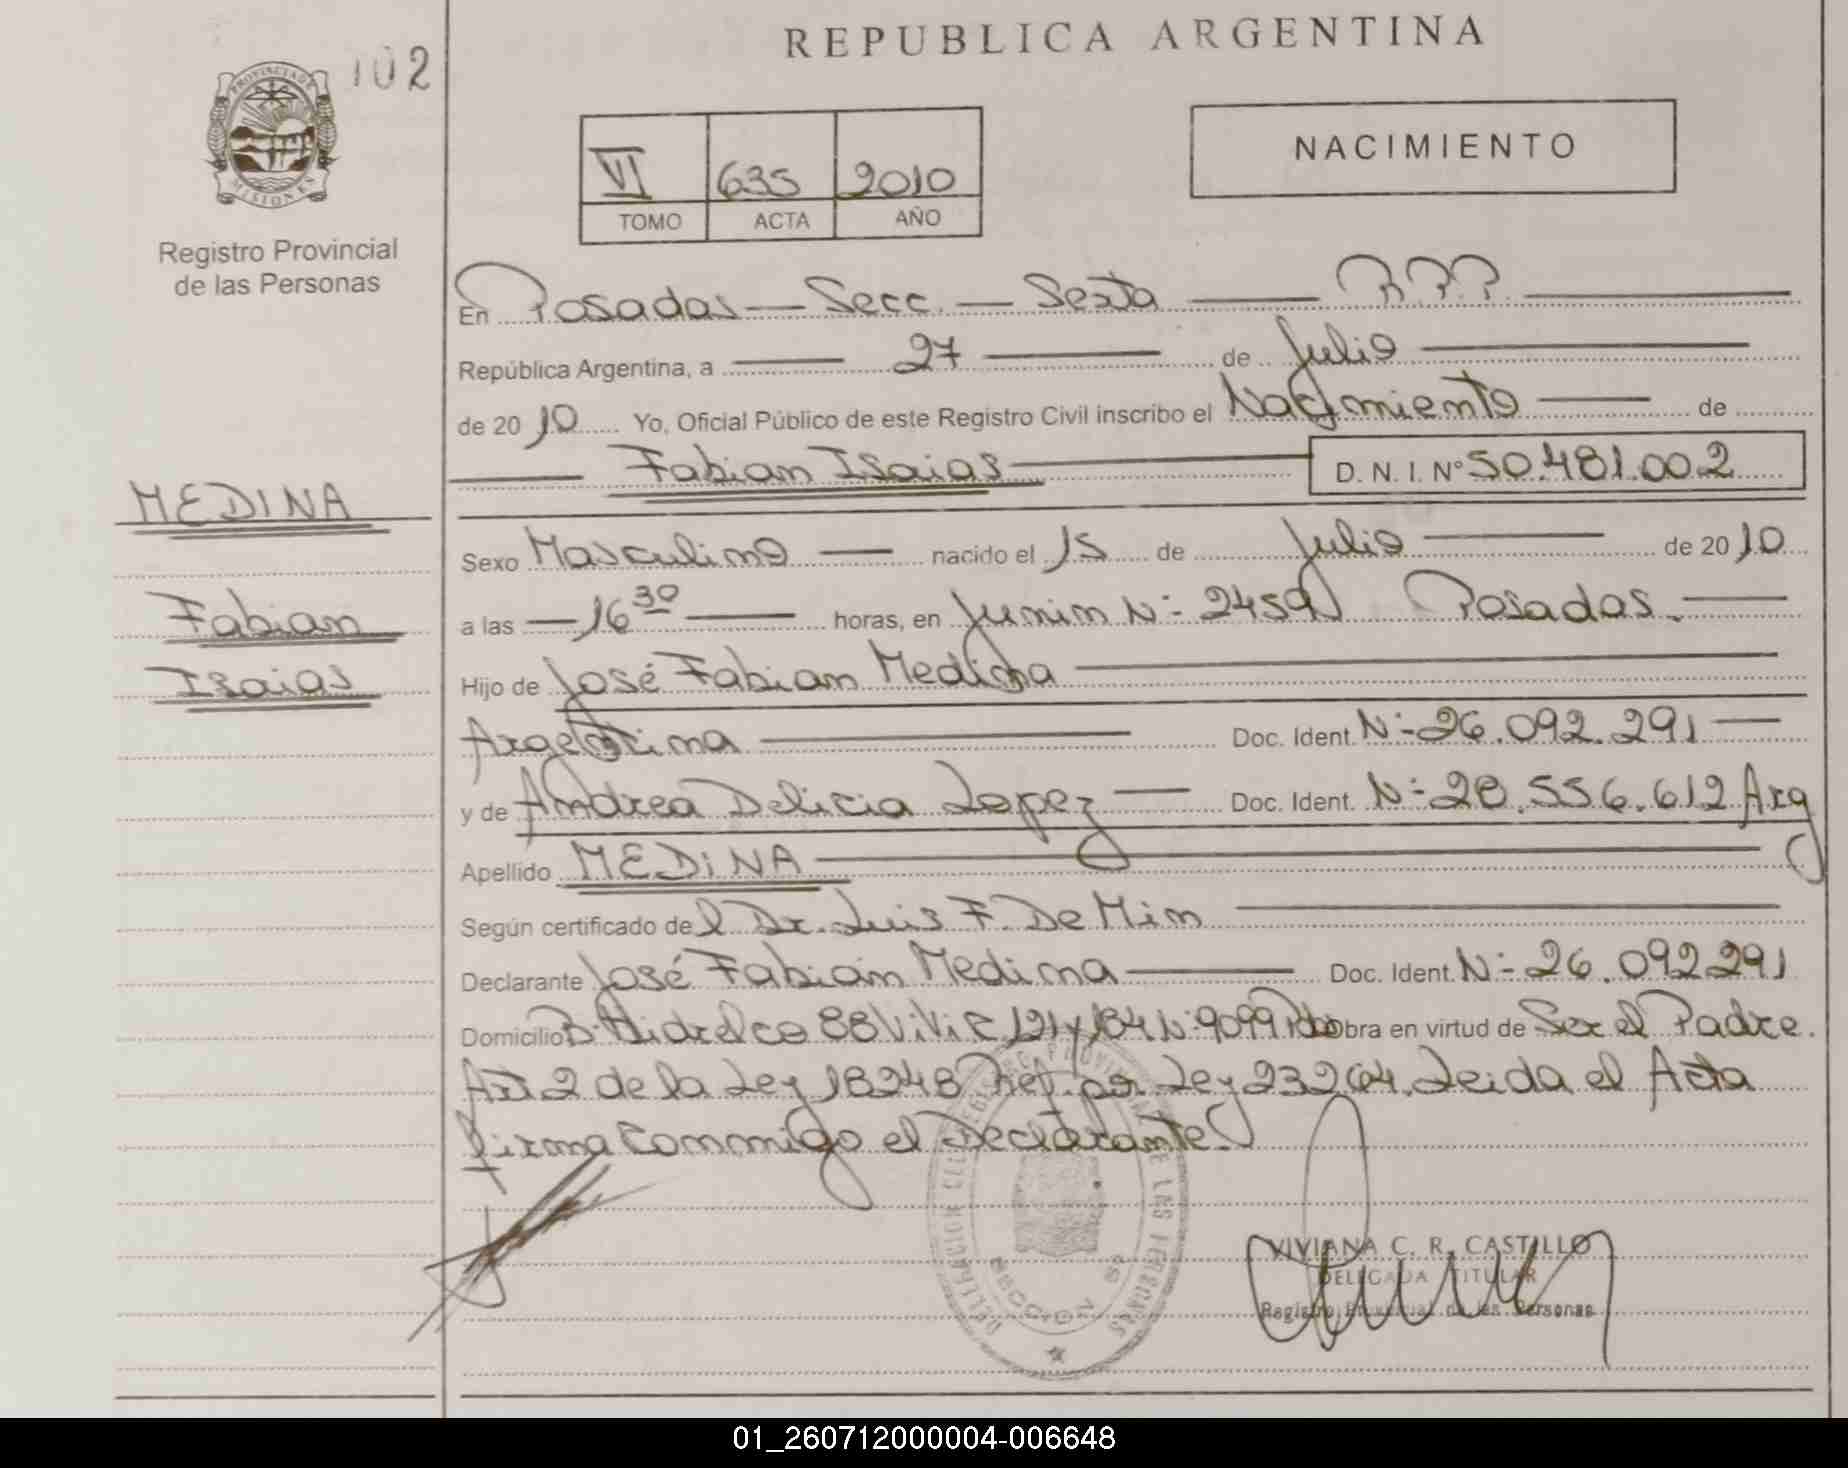 REPUBLICA ARGENTINA
102
PROVINCIA DE
MISIONES
Registro Provincial
de las Personas
VI 635 2010
TOMO ACTA AÑO
NACIMIENTO
En Posadas — Secc. — Sexta — R.P.P.
República Argentina, a — 27 — de Julio —
de 2010 Yo, Oficial Público de este Registro Civil inscribo el Nacimiento — de
— Fabian Isaias — D. N. I. N° 50.481.002
MEDINA
Fabian
Isaias
Sexo Masculino — nacido el 15 de Julio — de 2010
a las — 16 30 — horas, en Junin N:- 2459 Posadas. —
Hijo de José Fabian Medina —
Argentina — Doc. Ident. N:- 26.092.291 —
y de Andrea Delicia Lopez — Doc. Ident. N:- 28.556.612 Arg
Apellido MEDINA —
Según certificado del Dr. Luis F. De Mim —
Declarante José Fabián Medina — Doc. Ident. N:- 26.092.291
Domicilio B: 88 Viv. C, 121 y 184 N: 9099 Pdas obra en virtud de Ser el Padre.
Art 2 de la Ley 18248 Ref. por Ley 23264. Leida el Acta
firma conmigo el Declarante.
DELEGACION DEL REGISTRO PROVINCIAL DE LAS PERSONAS
SECCION 6ª
VIVIANA C. R. CASTILLO
DELEGADA TITULAR
Registro Provincial de las Personas
01_260712000004-006648